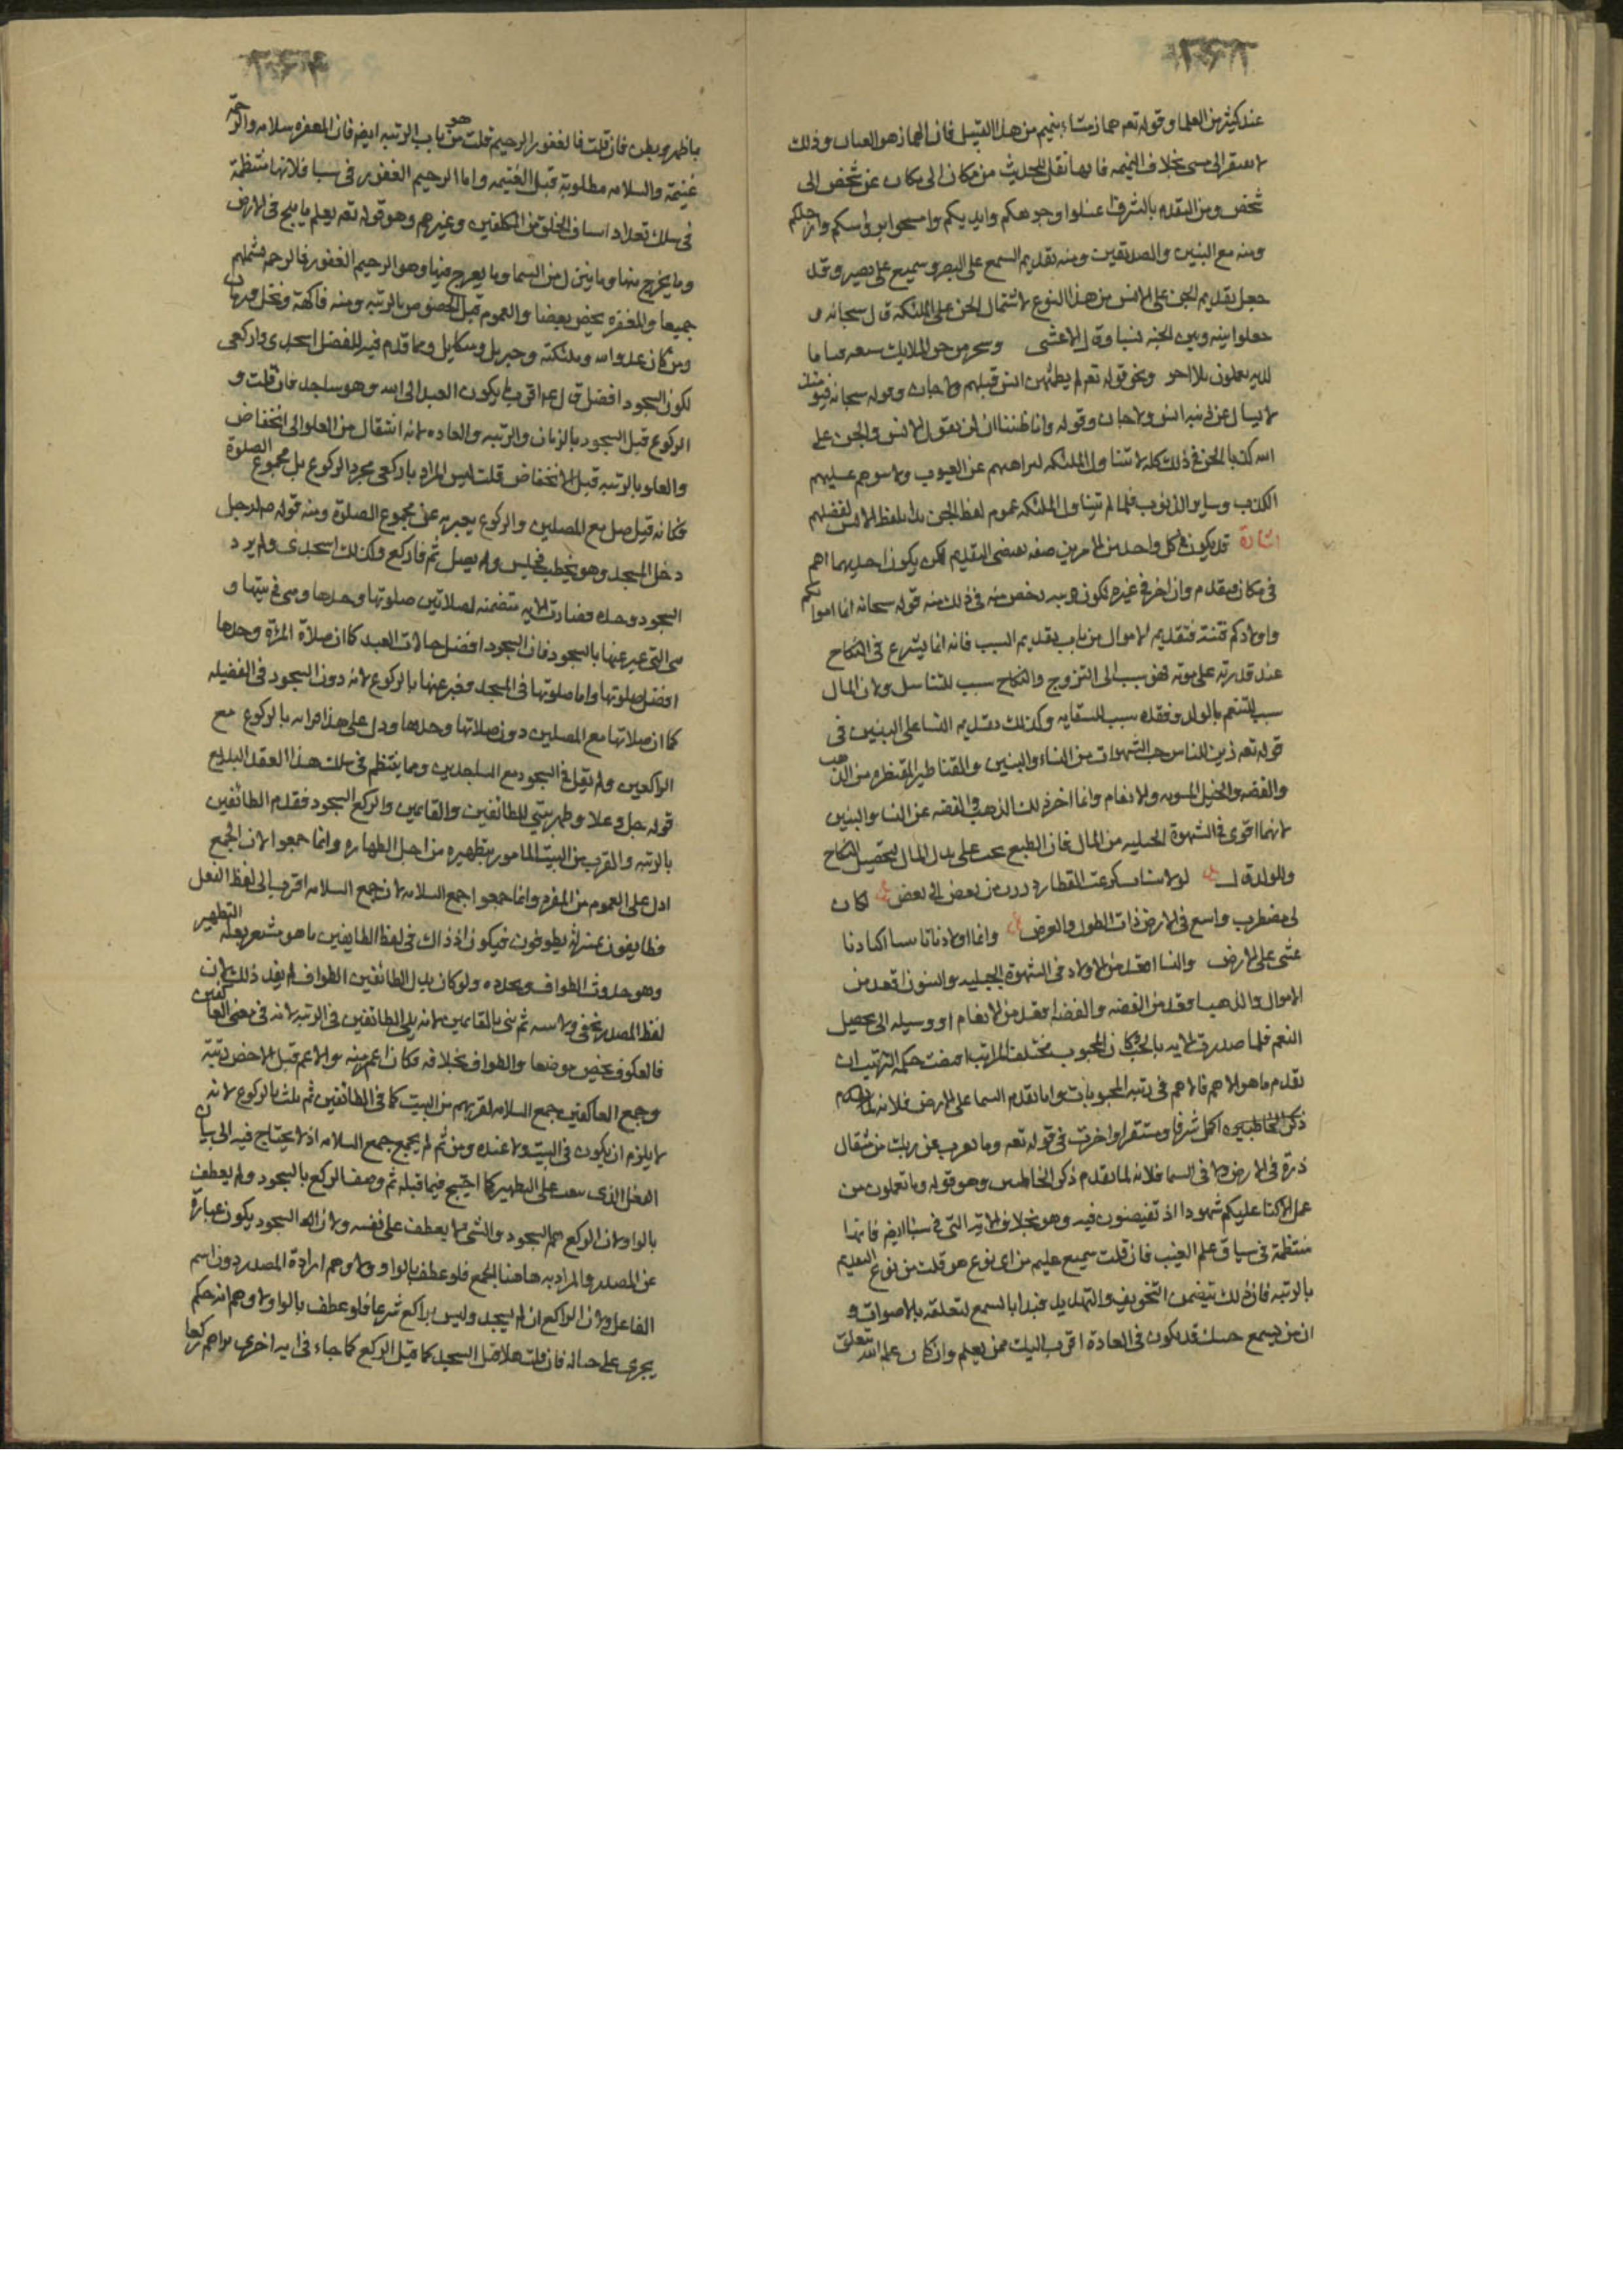 عند كثير من العلما وقوله تعه هماز مشاء بنميم من هذا القبيل فان الهماز هو العياب وذلك
لا يفتقر الى مشى بخلاف النميمه فانها نقل للحديث من مكان الى مكان عن شخص الى
شخص ومن التقدم بالشرف اغسلوا وجوهكم وايديكم وامسحوا برؤسكم وارجلكم
ومنه مع النبيين والصديقين ومنه تقديم السمع على البصر وسميع على بصير وقد
جعل تقديم الجن على الانس من هذا النوع لاشتمال الجن على الملئكة قال سبحانه و
جعلوا بينه وبين الجنه نسبا وقال الاعشى وسخر من جن الملايك سبعه قياما
لديه يعملون بلا اجر ونحو قوله تعه لم يطمثهن انس قبلهم ولا جان وقوله سبحانه فيومئذ
لا يسال عن ذنبه انس ولا جان وقوله وانا ظننا ان لن تقول الانس والجن على
الله كذبا الجن في ذلك كله لا تتناول الملئكه لبراهتهم عن العيوب ولا يتوهم عليهم
الكذب وساير الذنوب فلما لم تتناول الملئكه عموم لفظ الجن بدا بلفظ الانس لفضلهم
اشارة قد يكون في كل واحد من الامرين صفه تقتضى التقديم لكن يكون احديهما اهم
في مكان فيقدم وان اخر في غيره لكون غيره اخص منه في ذلك منه قوله سبحانه انما اموالكم
واولادكم فتنة فتقديم الاموال من باب تقديم السبب فانه انما يشرع في النكاح
عند قدرته على مؤنه فهى سبب الى التزوج والنكاح سبب للتناسل ولان المال
سبب للتنعم بالولد وفقده سبب للشقايه وكذلك تقديم النسا على البنين في
قوله تعه زين للناس حب الشهوات من النساء والبنين والقناطير المقنطره من الذهب
والفضه والخيل المسومه والانعام وانما اخر ذلك الذهب والفضه عن النسا والبنين
لانهما اقوى في الشهوة الجبليه من المال فان الطبع يحث على بذل المال لتحصيل النكاح
والولد قال لولا بنيات كزغب القطا رددن من بعض الى بعض لكان
لى مضطرب واسع في الارض ذات الطول والعرض وانما اولادنا بيننا اكبادنا
تمشى على الارض والنسا اقعد من الاولاد في الشهوة الجبليه والبنون اقعد من
الاموال والذهب اقعد من الفضه والفضه اقعد من الانعام اذ وسيله الى تحصيل
النعم فلما صدرت الايه بالحب وكان المحبوب مختلف المراتب اقتضت حكمة الترتيب ان
يقدم ما هو الاهم فالاهم في رتبه المحبوبات واما تقدم السما على الارض فلانه لما تقدم
ذكر المخاطبين اكمل شرفا ومستقرا واخرت في قوله تعه وما يعزب عن ربك من مثقال
ذرة في الارض ولا في السما فلانه لما تقدم ذكر المخاطبين وهو قوله وما تعملون من
عمل الا كنا عليكم شهودا اذ تفيضون فيه وهو بخلاف الاية التى في سبا ايضا فانها
منتظمة في سياق علم الغيب فان قلت سميع عليم من اى نوع هو قلت من نوع التقديم
بالرتبه فان ذلك يتضمن التخويف والتهديد فبدا بالسمع لتعلقه بالاصوات و
ان من يسمع حسك قد يكون في العادة اقرب اليك ممن يعلم وان كان علم الله تعلق
بما ظهر وبطن فان قلت فالغفور الرحيم قلت هو من باب الرتبه ايضا فان المغفره سلامه والرحمة
غنيمة والسلامه مطلوبة قبل الغنيمه واما الرحيم الغفور في سبا فلانها منتظمة
في سلك تعداد اصناف الخلق من المكلفين وغيرهم وهو قوله تعه يعلم ما يلج في الارض
وما يخرج منها وما ينزل من السما وما يعرج فيها وهو الرحيم الغفور فالرحمه تشملهم
جميعا والمغفره تخص بعضا والعموم قبل الخصوص بالرتبه ومنه فاكهة ونخل ورمان
ومن كان عدوا لله وملئكته وجبريل وميكايل ومما قدم فيه للفضل اسجدى واركعى
لكون السجود افضل قال عه اقرب ما يكون العبد الى الله وهو ساجد فان قلت و
الركوع قبل السجود بالزمان والرتبه والعاده لانه انتقال من العلو الى انخفاض
والعلو بالرتبه قبل الانخفاض قلت ليس المراد باركعى مجرد الركوع بل مجموع الصلوة
فكانه قيل صل مع المصلين والركوع يعبر به عن مجموع الصلوة ومنه قوله لرجل
دخل المسجد وهو يخطب فجلس ولم يصل ثم فاركع وكذلك اسجدى ولم يرد
السجود وحده فصارت الايه متضمنه لصلاتين صلوتها وحدها وهى في بيتها و
هى التى عبر عنها بالسجود فان السجود افضل حالات العبد كما ان صلاة المراة وحدها
افضل صلوتها واما صلوتها في المسجد فعبر عنها بالركوع لانه دون السجود في الفضيله
كما ان صلاتها مع المصلين دون صلاتها وحدها ودل على هذا امرانه بالركوع مع
الراكعين ولم يقل في السجود مع الساجدين ومما ينتظم في سلك هذا العقد البديع
قوله جل وعلا وطهر بيتي للطائفين والقايمين والركع السجود فقدم الطائفين
بالرتبه والقرب من البيت المامور بتطهيره من اجل الطهاره وانما جمعوا لان الجمع
ادل على العموم من المفرد وانما جمعوا جمع السلامه لان جمع السلامه اقرب الى لفظ الفعل
فطايفون بمنزلة يطوفون فيكون اذ ذاك في لفظ الطايفين ما هو مشعر بعلة التطهير
وهو حدوث الطواف وتجدده ولو كان بدل الطائفين الطواف لم يفد ذلك لان
لفظ المصدر يخفى ولا سه ثم ثنى بالقايمين لانه يلى الطائفين في الرتبه لانه في معنى العاكفين
فالعكوف يخص موضعا والطواف بخلافه فكان اعم منه والاعم قبل الاخص رتبة
وجمع العاكفين جمع السلامه لقربهم من البيت كما في الطائفين ثم ثلث بالركوع لانه
لا يلزم ان يكون في البيت ولا عنده ومن ثم لم يجمع جمع السلامه اذ لا يحتاج فيه الى بيان
الفعل الذى يبعث على التطهير كما احتيج فيما قبله ثم وصف الركع بالسجود ولم يعطف
بالواو لان الركع هم السجود والشئ لا يعطف على نفسه ولان السجود يكون عبارة
عن المصدر والمراد به هاهنا الجمع فلو عطف بالواو لاوهم ارادة المصدر دون اسم
الفاعل ولان الراكع ان لم يسجد وليس براكع شرعا فلو عطف بالواو لاوهم انه حكم
يجرى على حياله فان قلت هلا قيل السجد كما قيل الركع كما جاء في ايه اخرى تراهم ركعا